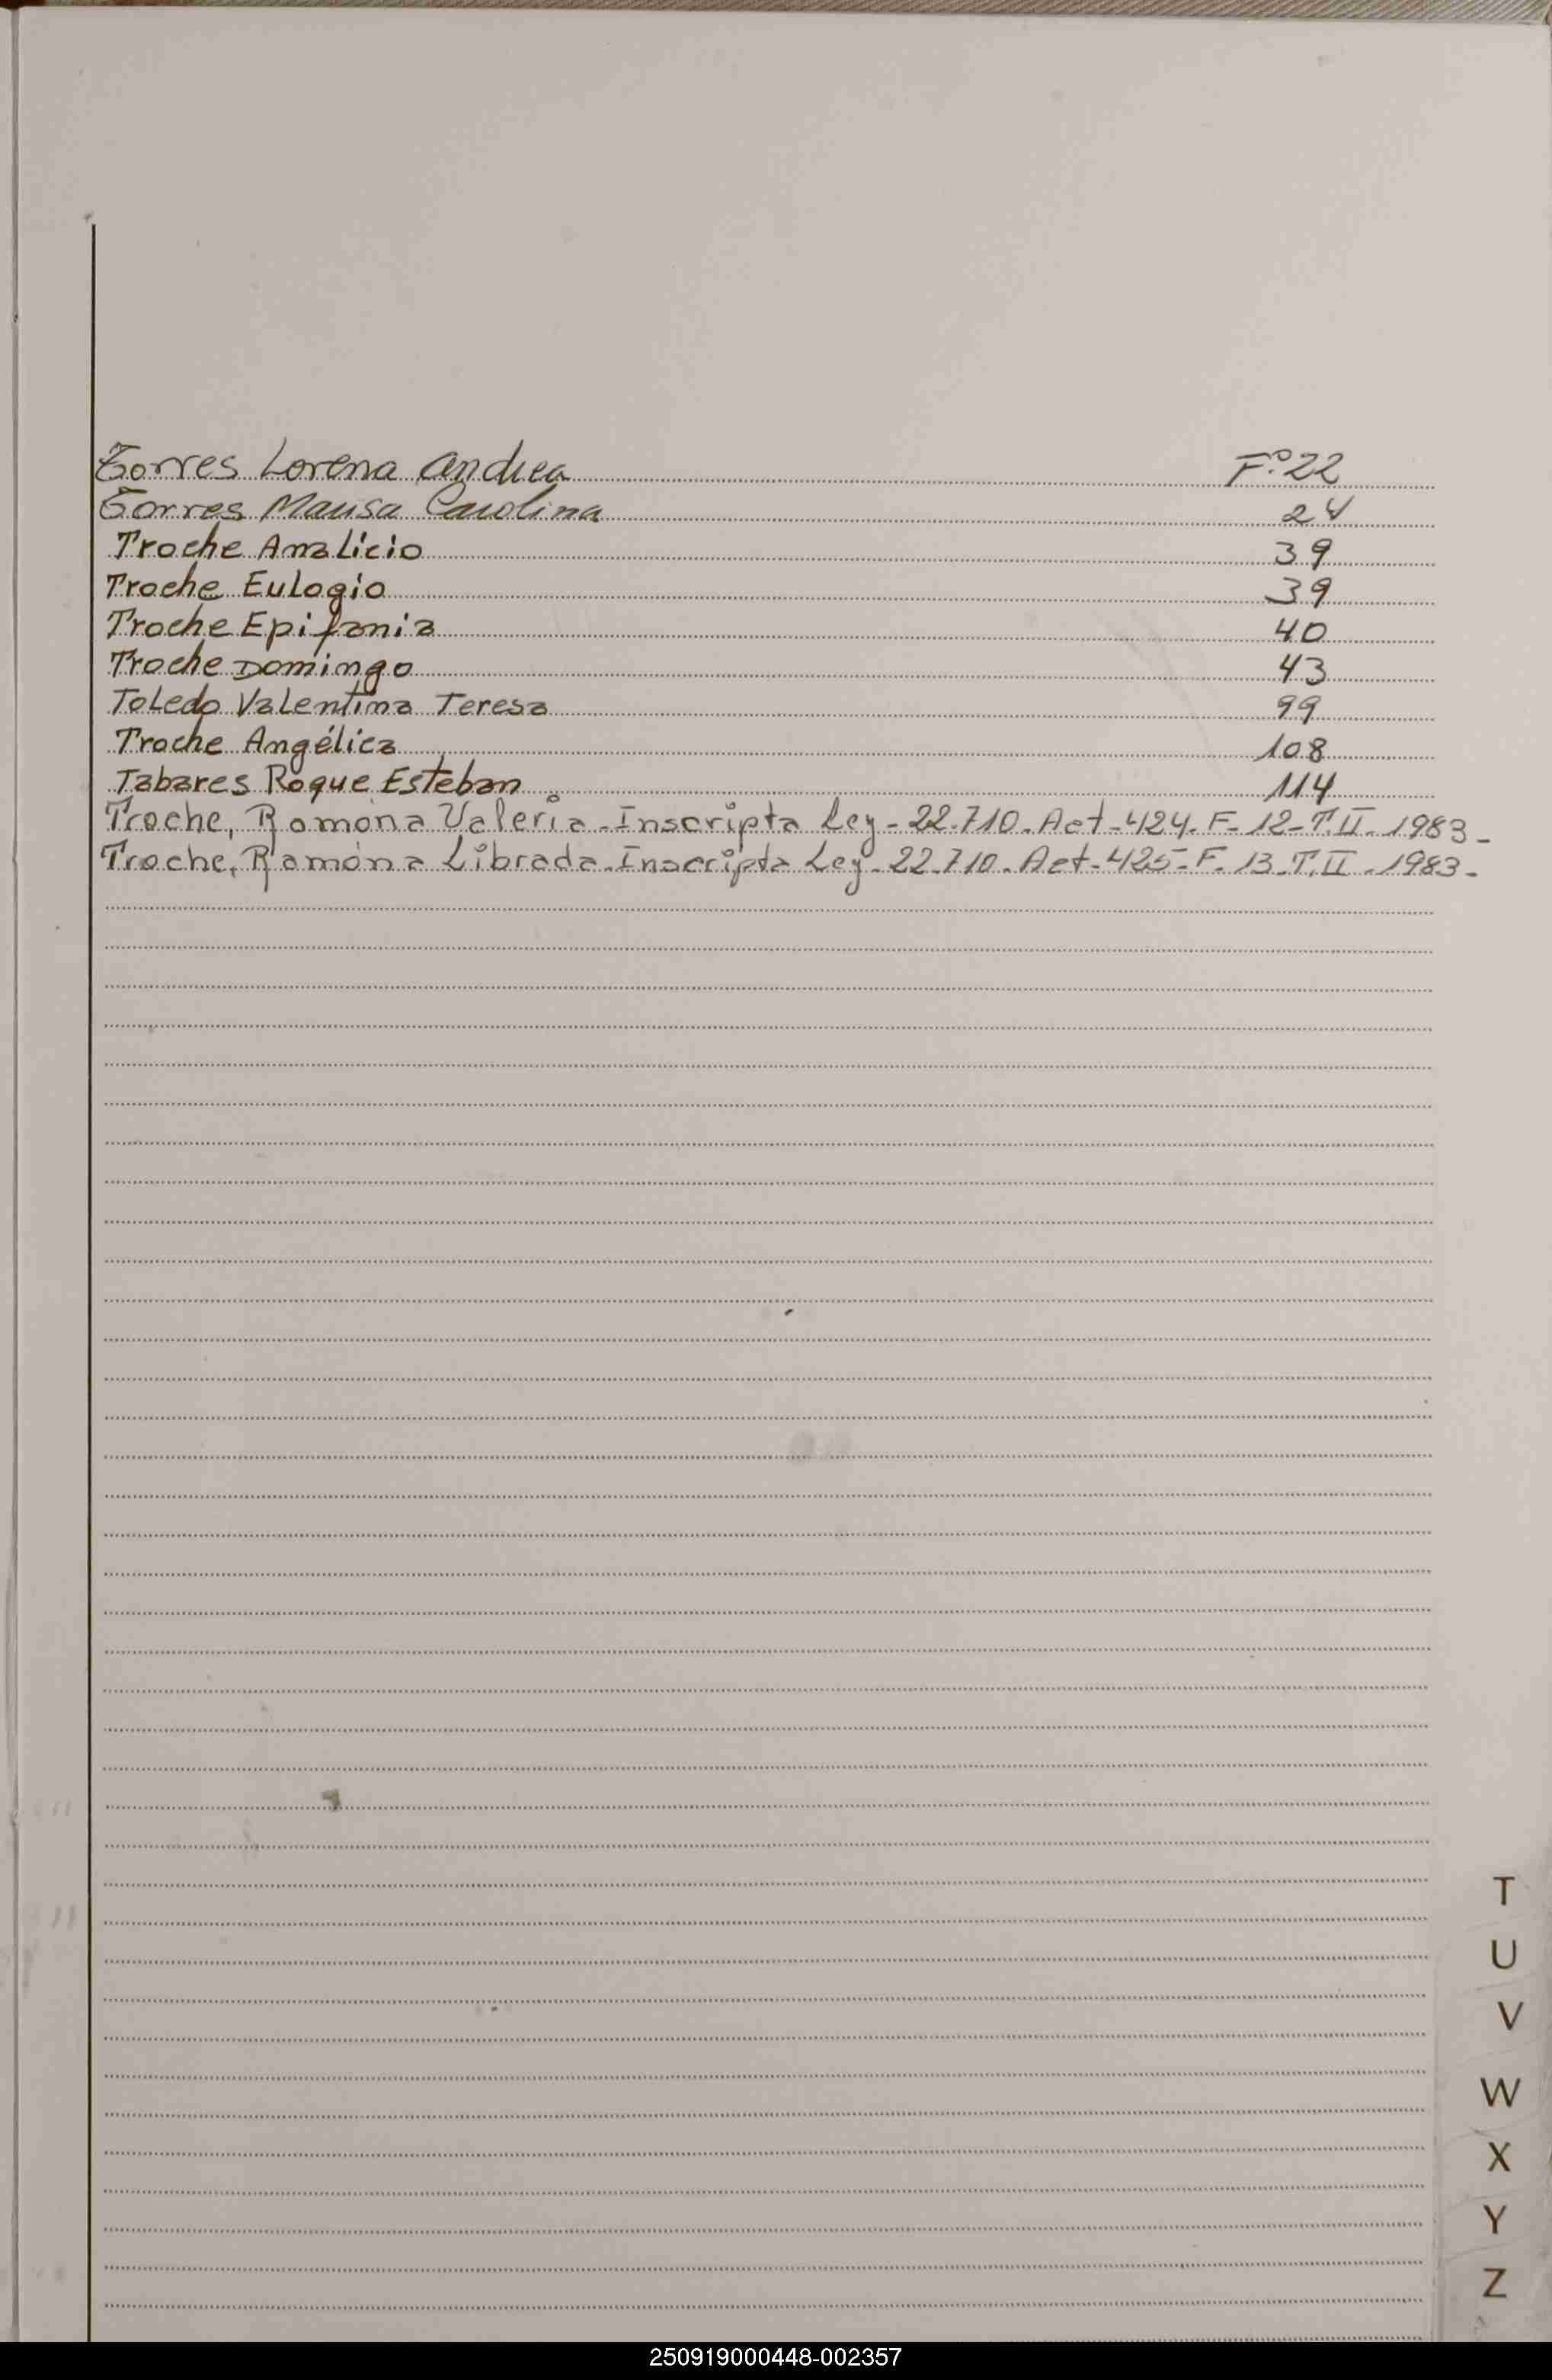 Torres Lorena Andrea F.º 22
Torres Marisa Carolina 24
Troche Analicio 39
Troche Eulogio 39
Troche Epifania 40
Troche Domingo 43
Toledo Valentina Teresa 99
Troche Angélica 108
Tabares Roque Esteban 114
Troche, Ramona Valeria - Inscripta Ley - 22.710 - Act - 424 - F - 12 - T. II - 1983 -
Troche, Ramona Librada - Inscripta Ley - 22.710 - Act - 425 - F - 13 - T. II - 1983 -
T
U
V
W
X
Y
Z
250919000448-002357